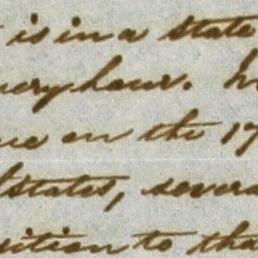 is in a state
every hour.
on the 17
States, severa
sition to tha